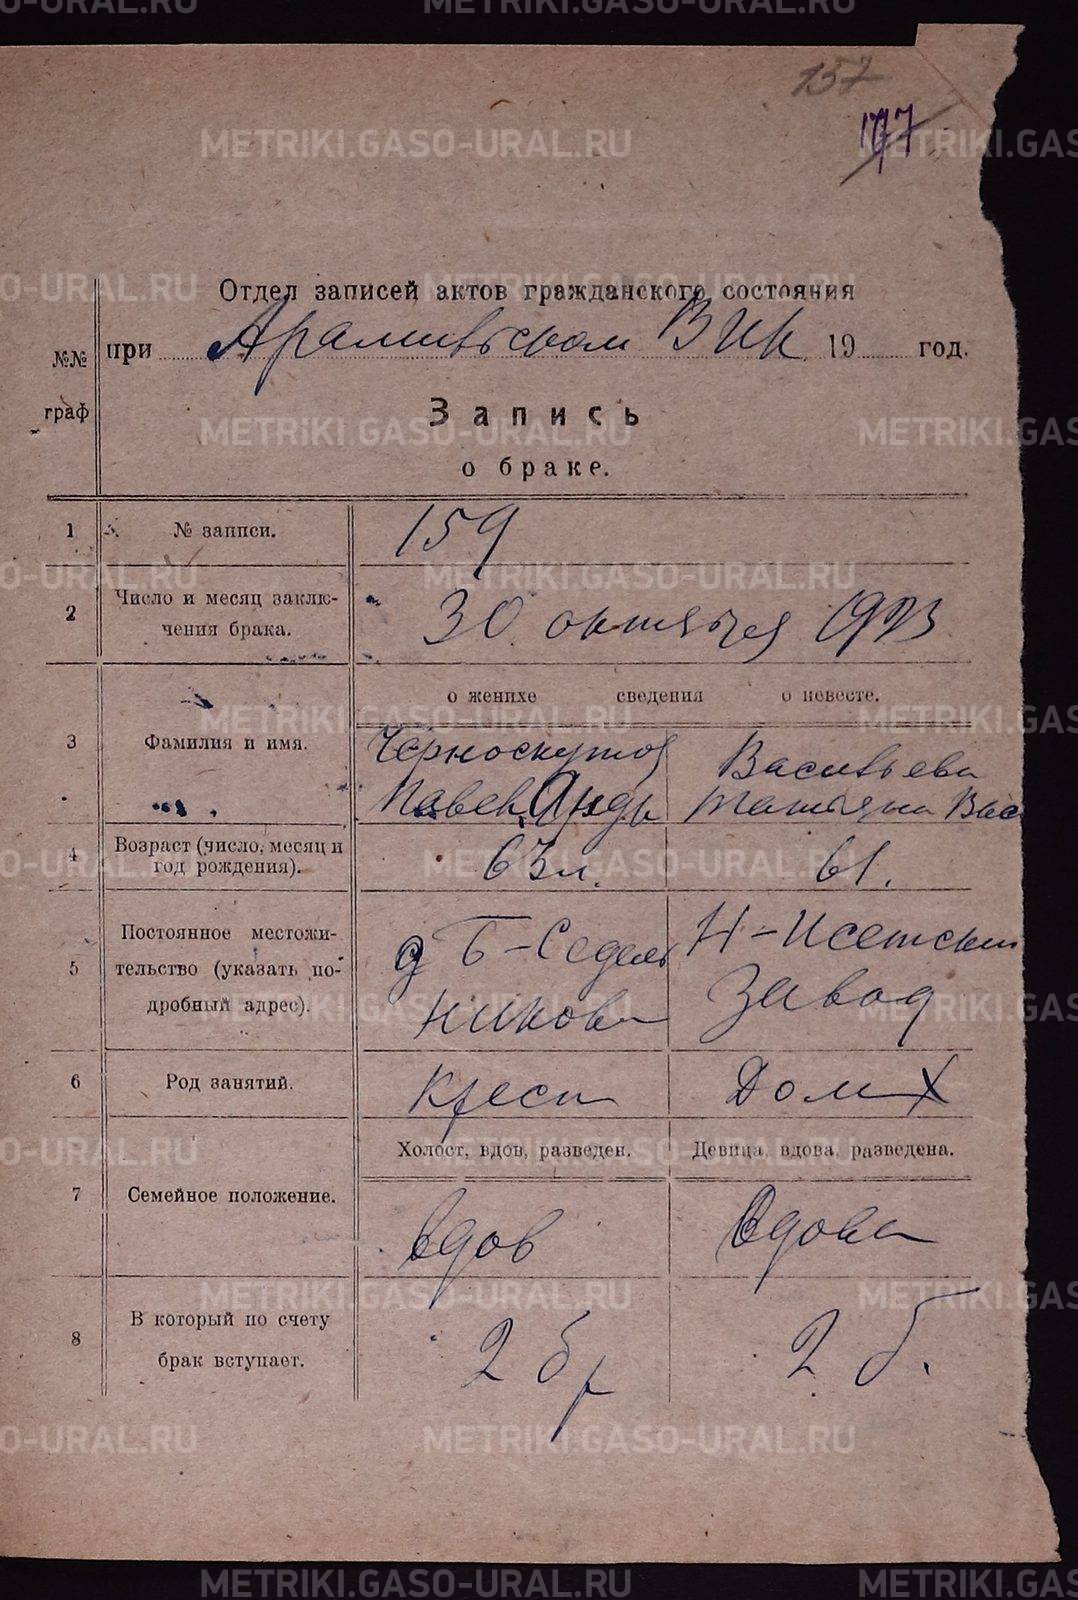 157
177
Отдел записей актов гражданского состояния
№№ граф
при Арамильском Вик 19 год.
Запись
о браке.
1 № записи. 159
2 Число и месяц заклю-
чения брака. 30 октября 1923
о женихе сведения о невесте.
3 Фамилия и имя. Черноскутов Васильева
Павел Андр Татьяна Вас
4 Возраст (число, месяц и
год рождения). 63 л. 61.
5 Постоянное местожи-
тельство (указать по-
дробный адрес). д Б-Седель
никова Н-Исетский
Завод
6 Род занятий. Крест Дом Х
Холост, вдов, разведен. Девица, вдова, разведена.
7 Семейное положение. вдов вдова
8 В который по счету
брак вступает. 2 бр 2 б.
METRIKI.GASO-URAL.RU